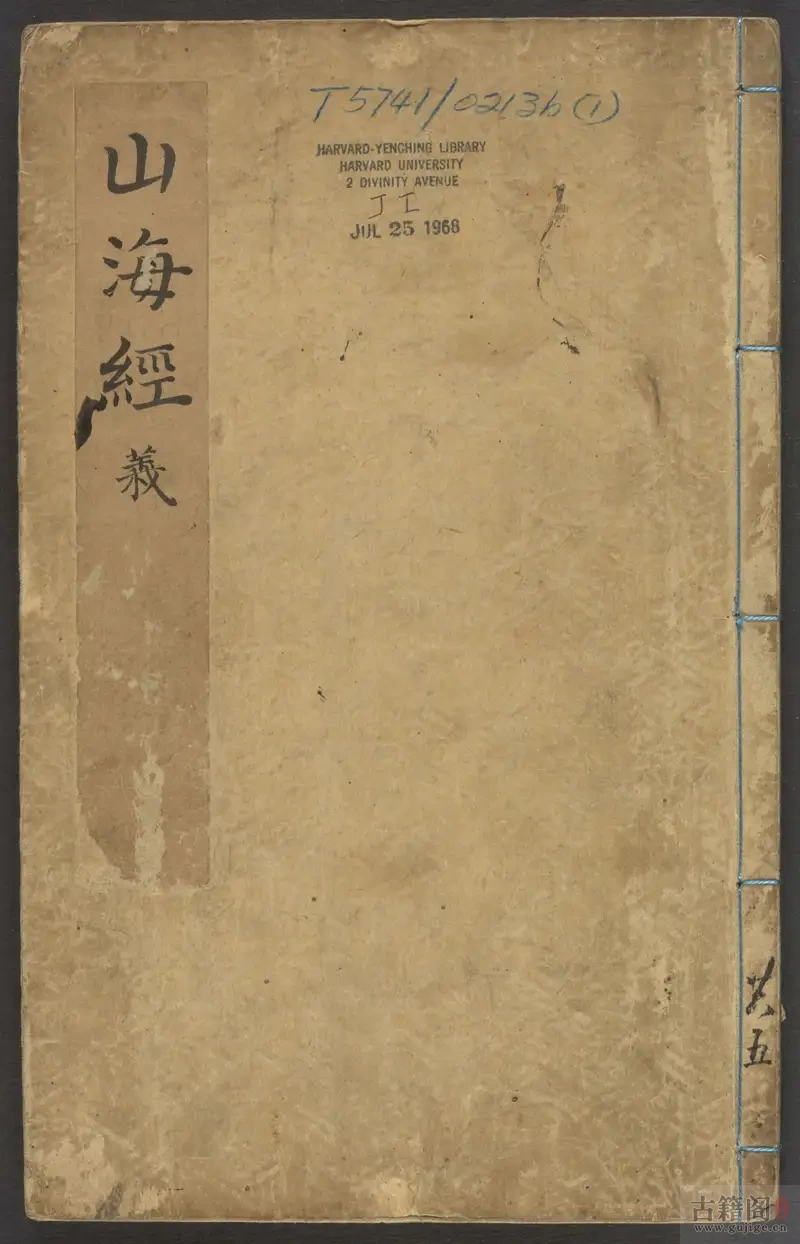 山海經
義
T5741/0213b(1)
HARVARD-YENCHING LIBRARY
HARVARD UNIVERSITY
2 DIVINITY AVENUE
J I
JUL 25 1968
共五
古籍阁
www.gujige.cn